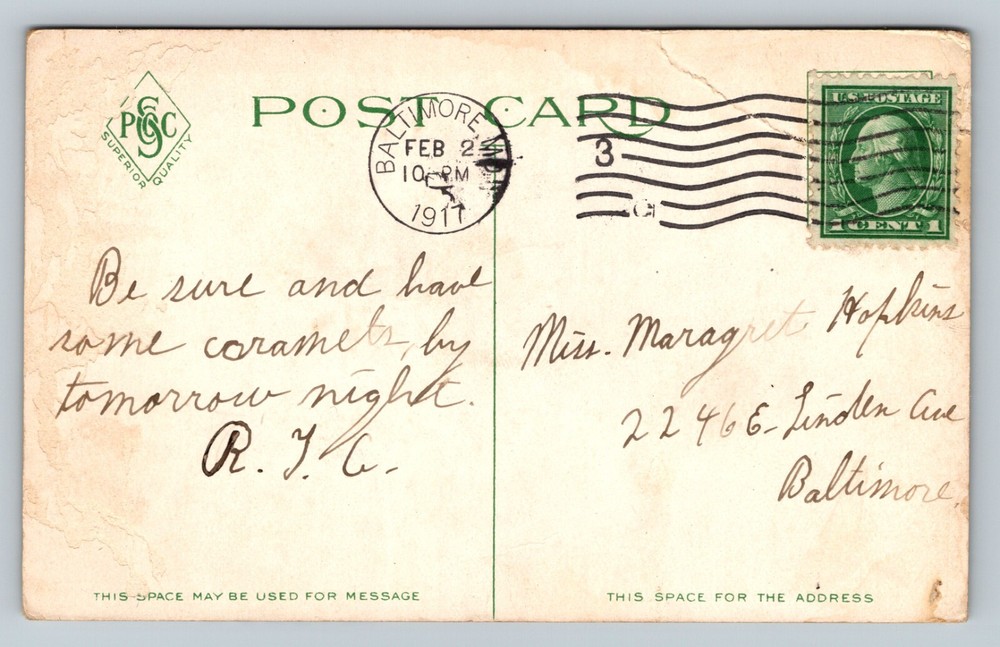 POST CARD
PSGC
SUPERIOR QUALITY
BALTIMORE, MD.
FEB 2
10 PM
1917
3
U.S. POSTAGE
1 CENT 1
Be sure and have
some caramels, by
tomorrow night.
R. T. C.
Miss. Maragret Hopkins
2246 E. Linden Ave
Baltimore.
THIS SPACE MAY BE USED FOR MESSAGE
THIS SPACE FOR THE ADDRESS